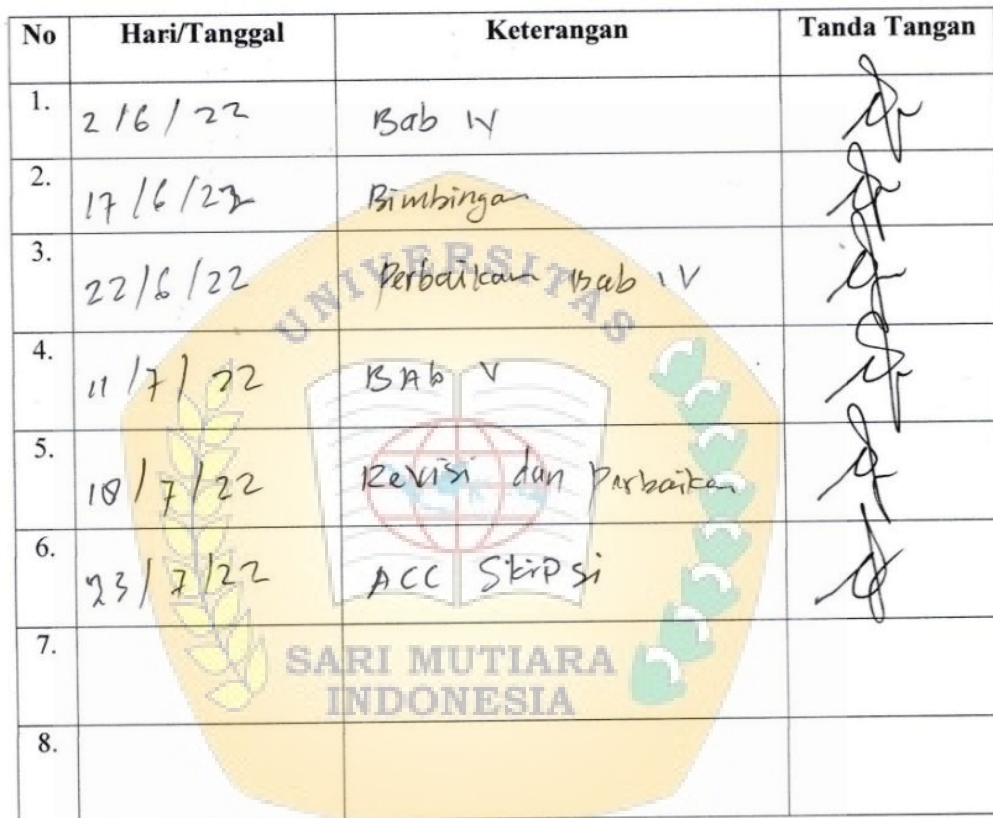 No Hari/Tanggal Keterangan Tanda Tangan
1. 2/6/22 Bab IV
2. 17/6/22 Bimbingan
3. 22/6/22 Perbaikan Bab IV
4. 11/7/22 BAb V
5. 18/7/22 Revisi dan Perbaikan
6. 23/7/22 ACC Skripsi
7.
8.
UNIVERSITAS
SARI MUTIARA
INDONESIA